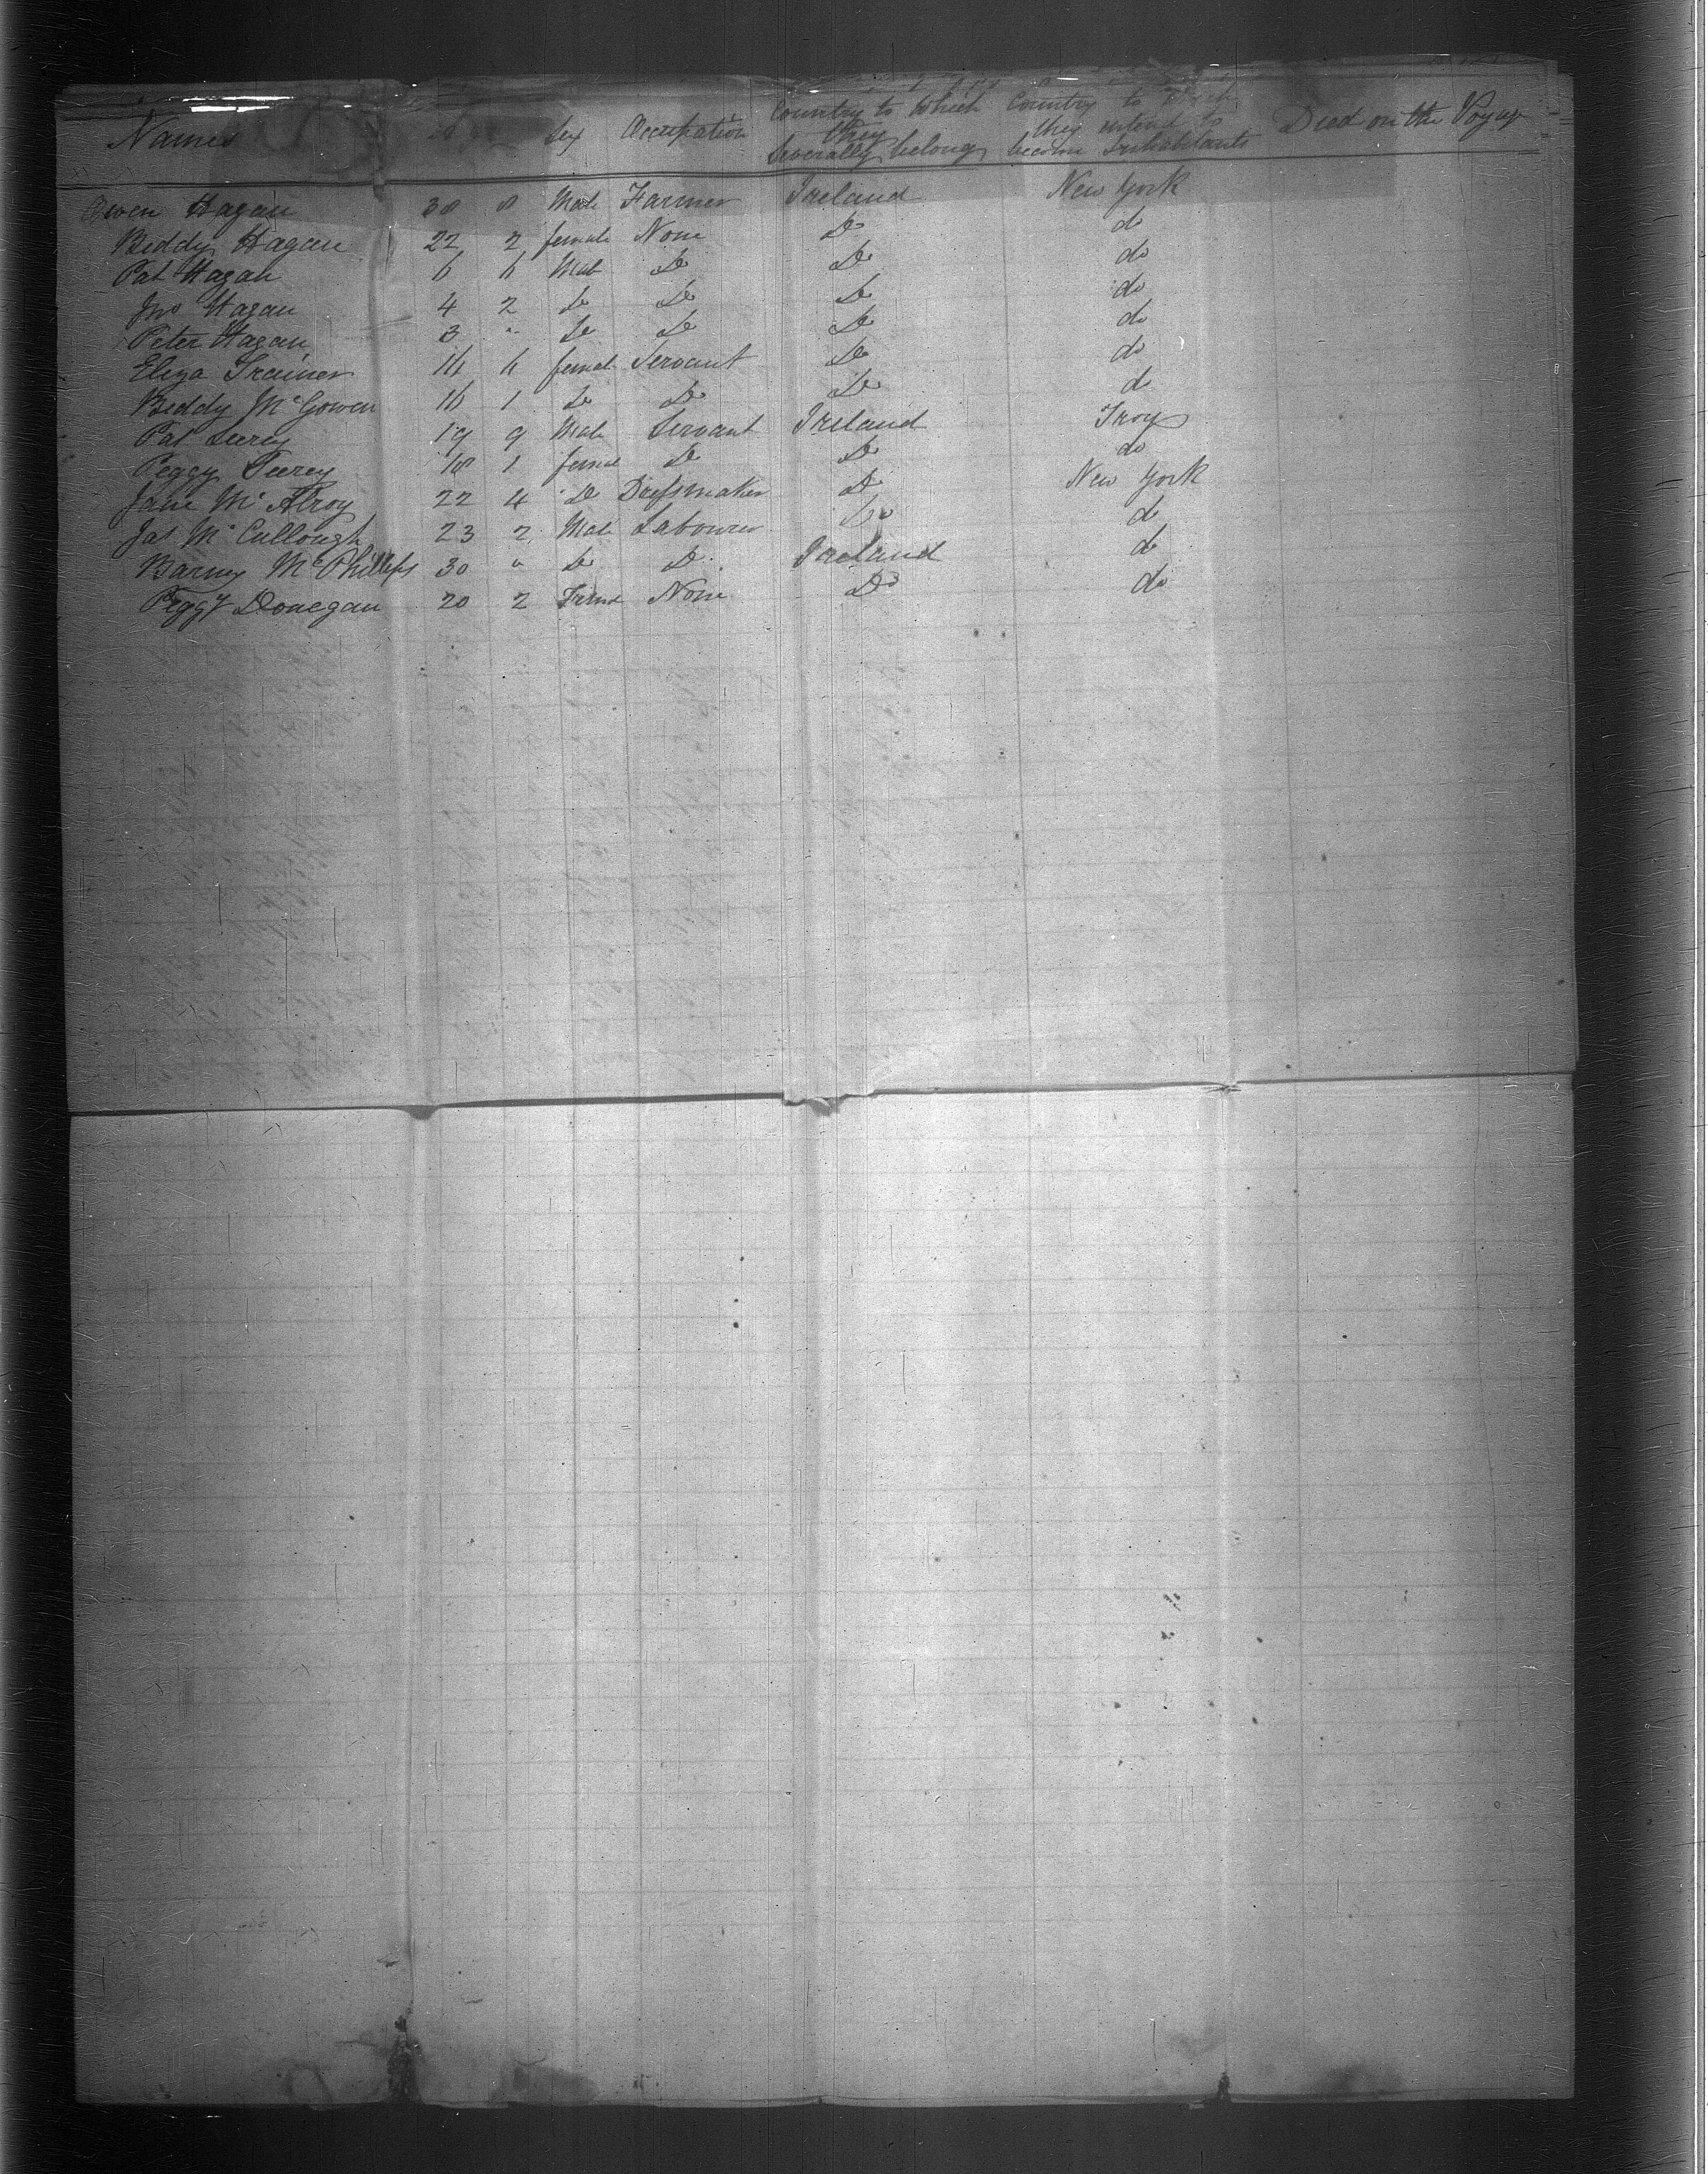 Names Sex Occupation Country to Which they Severally belong Country to Which they intend to become Inhabitants Died on the Voyage
Owen Hagan 38 8 Male Farmer Ireland New York
Biddy Hagan 22 2 female None Do do
Pat Hagan 6 6 Male Do Do do
Jno Hagan 4 2 Do Do Do do
Peter Hagan 3 " Do Do Do do
Eliza Trainer 16 6 femal Servant Do do
Biddy McGowen 16 1 Do Do Do do
Pat 19 9 Male Servant Ireland Troy
Peggy 18 1 femal Do Do do
Jane McAlroy 22 4 Do Dressmaker Do New York
Jas McCullough 23 2 Male Labourer Do do
Barney McPhillips 30 " Do Do Ireland do
Peggy Donegan 20 2 Femal None Do do